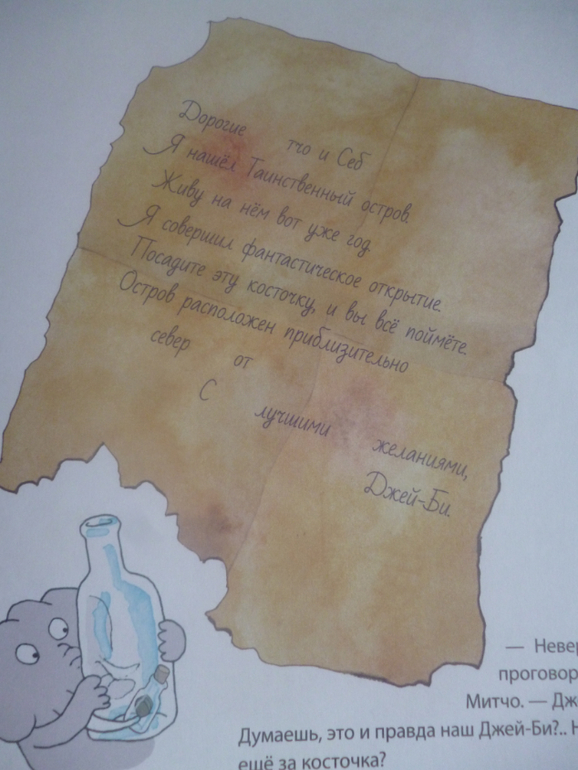 Дорогие тчо и Себ
Я нашёл Таинственный остров.
Живу на нём вот уже год
Я совершил фантастическое открытие.
Посадите эту косточку, и вы всё поймёте.
Остров расположен приблизительно
север от
С лучшими желаниями,
Джей-Би.
— Невер
проговор
Митчо. — Дж
Думаешь, это и правда наш Джей-Би?.. Н
ещё за косточка?